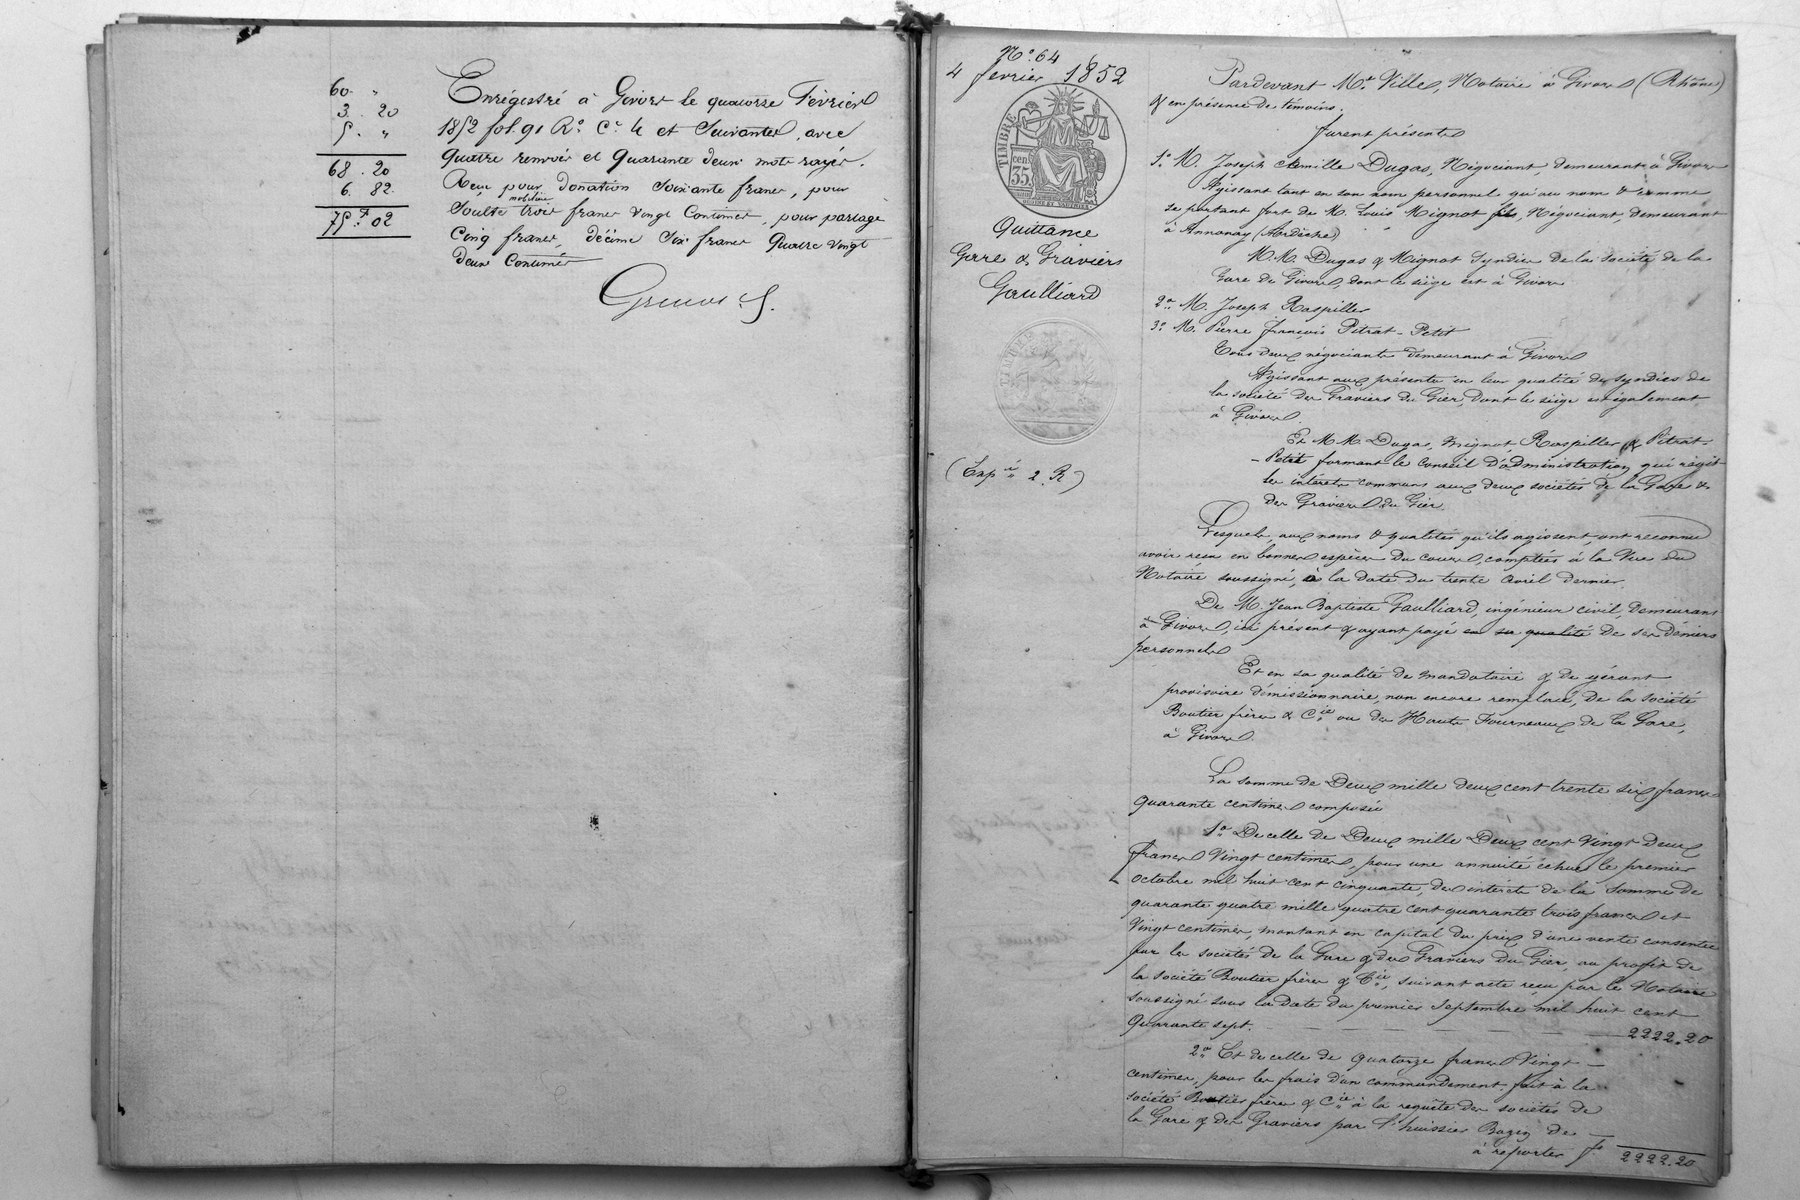 60. "
3. 20
5. "
68. 20
6. 82.
75.f 02
Enrégistré à Givors le quatorze Février
1852 fol. 91 Ro. Ce. 4 et Suivantes, avec
quatre renvois et quarante deux mots rayés.
Reçu pour donation Soixante francs, pour
mobilière
Soulte trois francs vingt Centimes, pour partage
Cinq francs, décime Six francs Quatre vingt
deux Centimes
No. 64
4 février 1852
TIMBRE
cen
35
Quittance
Gare & Graviers
Gaulliard
TIMBRE
(Expié 2. R)
Pardevant Me. Ville, Notaire à Givors (Rhône)
& en présence de témoins.
furent présents
1o. M. Joseph Camille Dugas, Négociant, demeurant à Givors
Agissant tant en son nom personnel qu'au nom & comme
se portant fort de M. Louis Mignot fils, Négociant, demeurant
à Annonay (Ardèche)
M.M. Dugas & Mignot Syndics de la société de la
Gare de Givors, dont le siège est à Givors
2o. M. Joseph Raspiller
3o. M. Pierre françois Pitrat-Petit
Tous deux négociants demeurant à Givors
Agissant aux présentes en leur qualité de syndics de
la société des Graviers du Gier, dont le siège est également
à Givors.
Et M.M. Dugas, Mignot Raspiller & Pitrat-
-Petit formant le Conseil d'administration qui régit
les intérêts communs aux deux sociétés de la Gare &
des Graviers du Gier.
Lesquels, aux noms & qualités qu'ils agissent, ont reconnu
avoir reçu en bonnes espèces du cours, comptées à la Vue du
Notaire soussigné, à la date du trente avril dernier
De M. Jean Baptiste Gaulliard, ingénieur civil, demeurant
à Givors, ici présent & ayant payé en sa qualité de ses deniers
personnels
Et en sa qualité de mandataire & de gérant
provisoire démissionnaire, non encore remplacé, de la société
Boutier frères & Cie. ou des Hauts Fourneaux de la Gare,
à Givors.
La somme de Deux mille deux cent trente six francs
quarante centimes composée
1o. De celle de Deux mille Deux cent Vingt Deux
francs Vingt centimes, pour une annuité échue le premier
octobre mil huit cent cinquante, des intérêts de la somme de
quarante quatre mille quatre cent quarante trois francs et
Vingt centimes, montant en capital du prix d'une vente consentie
par les sociétés de la Gare & des Graviers du Gier, au profit de
la société Boutier frères & Cie., suivant acte reçu par le Notaire
soussigné sous la date du premier Septembre mil huit cent
Quarante sept. — — — — — 2222.20
2o. Et de celle de quatorze francs Vingt —
centimes, pour les frais d'un commandement fait à la
société Boutier frères & Cie. à la requête des sociétés de
la Gare & des Graviers par l'huissier Bazin de —
à reporter fs 2222.20